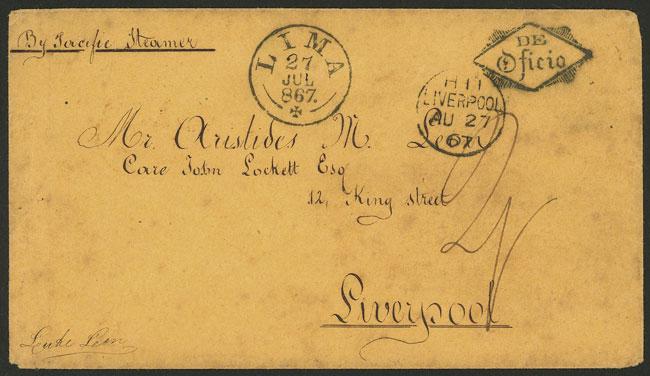 By Pacific Steamer
LIMA
27
JUL
867.
DE
Oficio
H 11
LIVERPOOL
AU 27
67
Mr. Aristides M. Leon
Care John Lockett Esq
12, King street
Liverpool
Leon